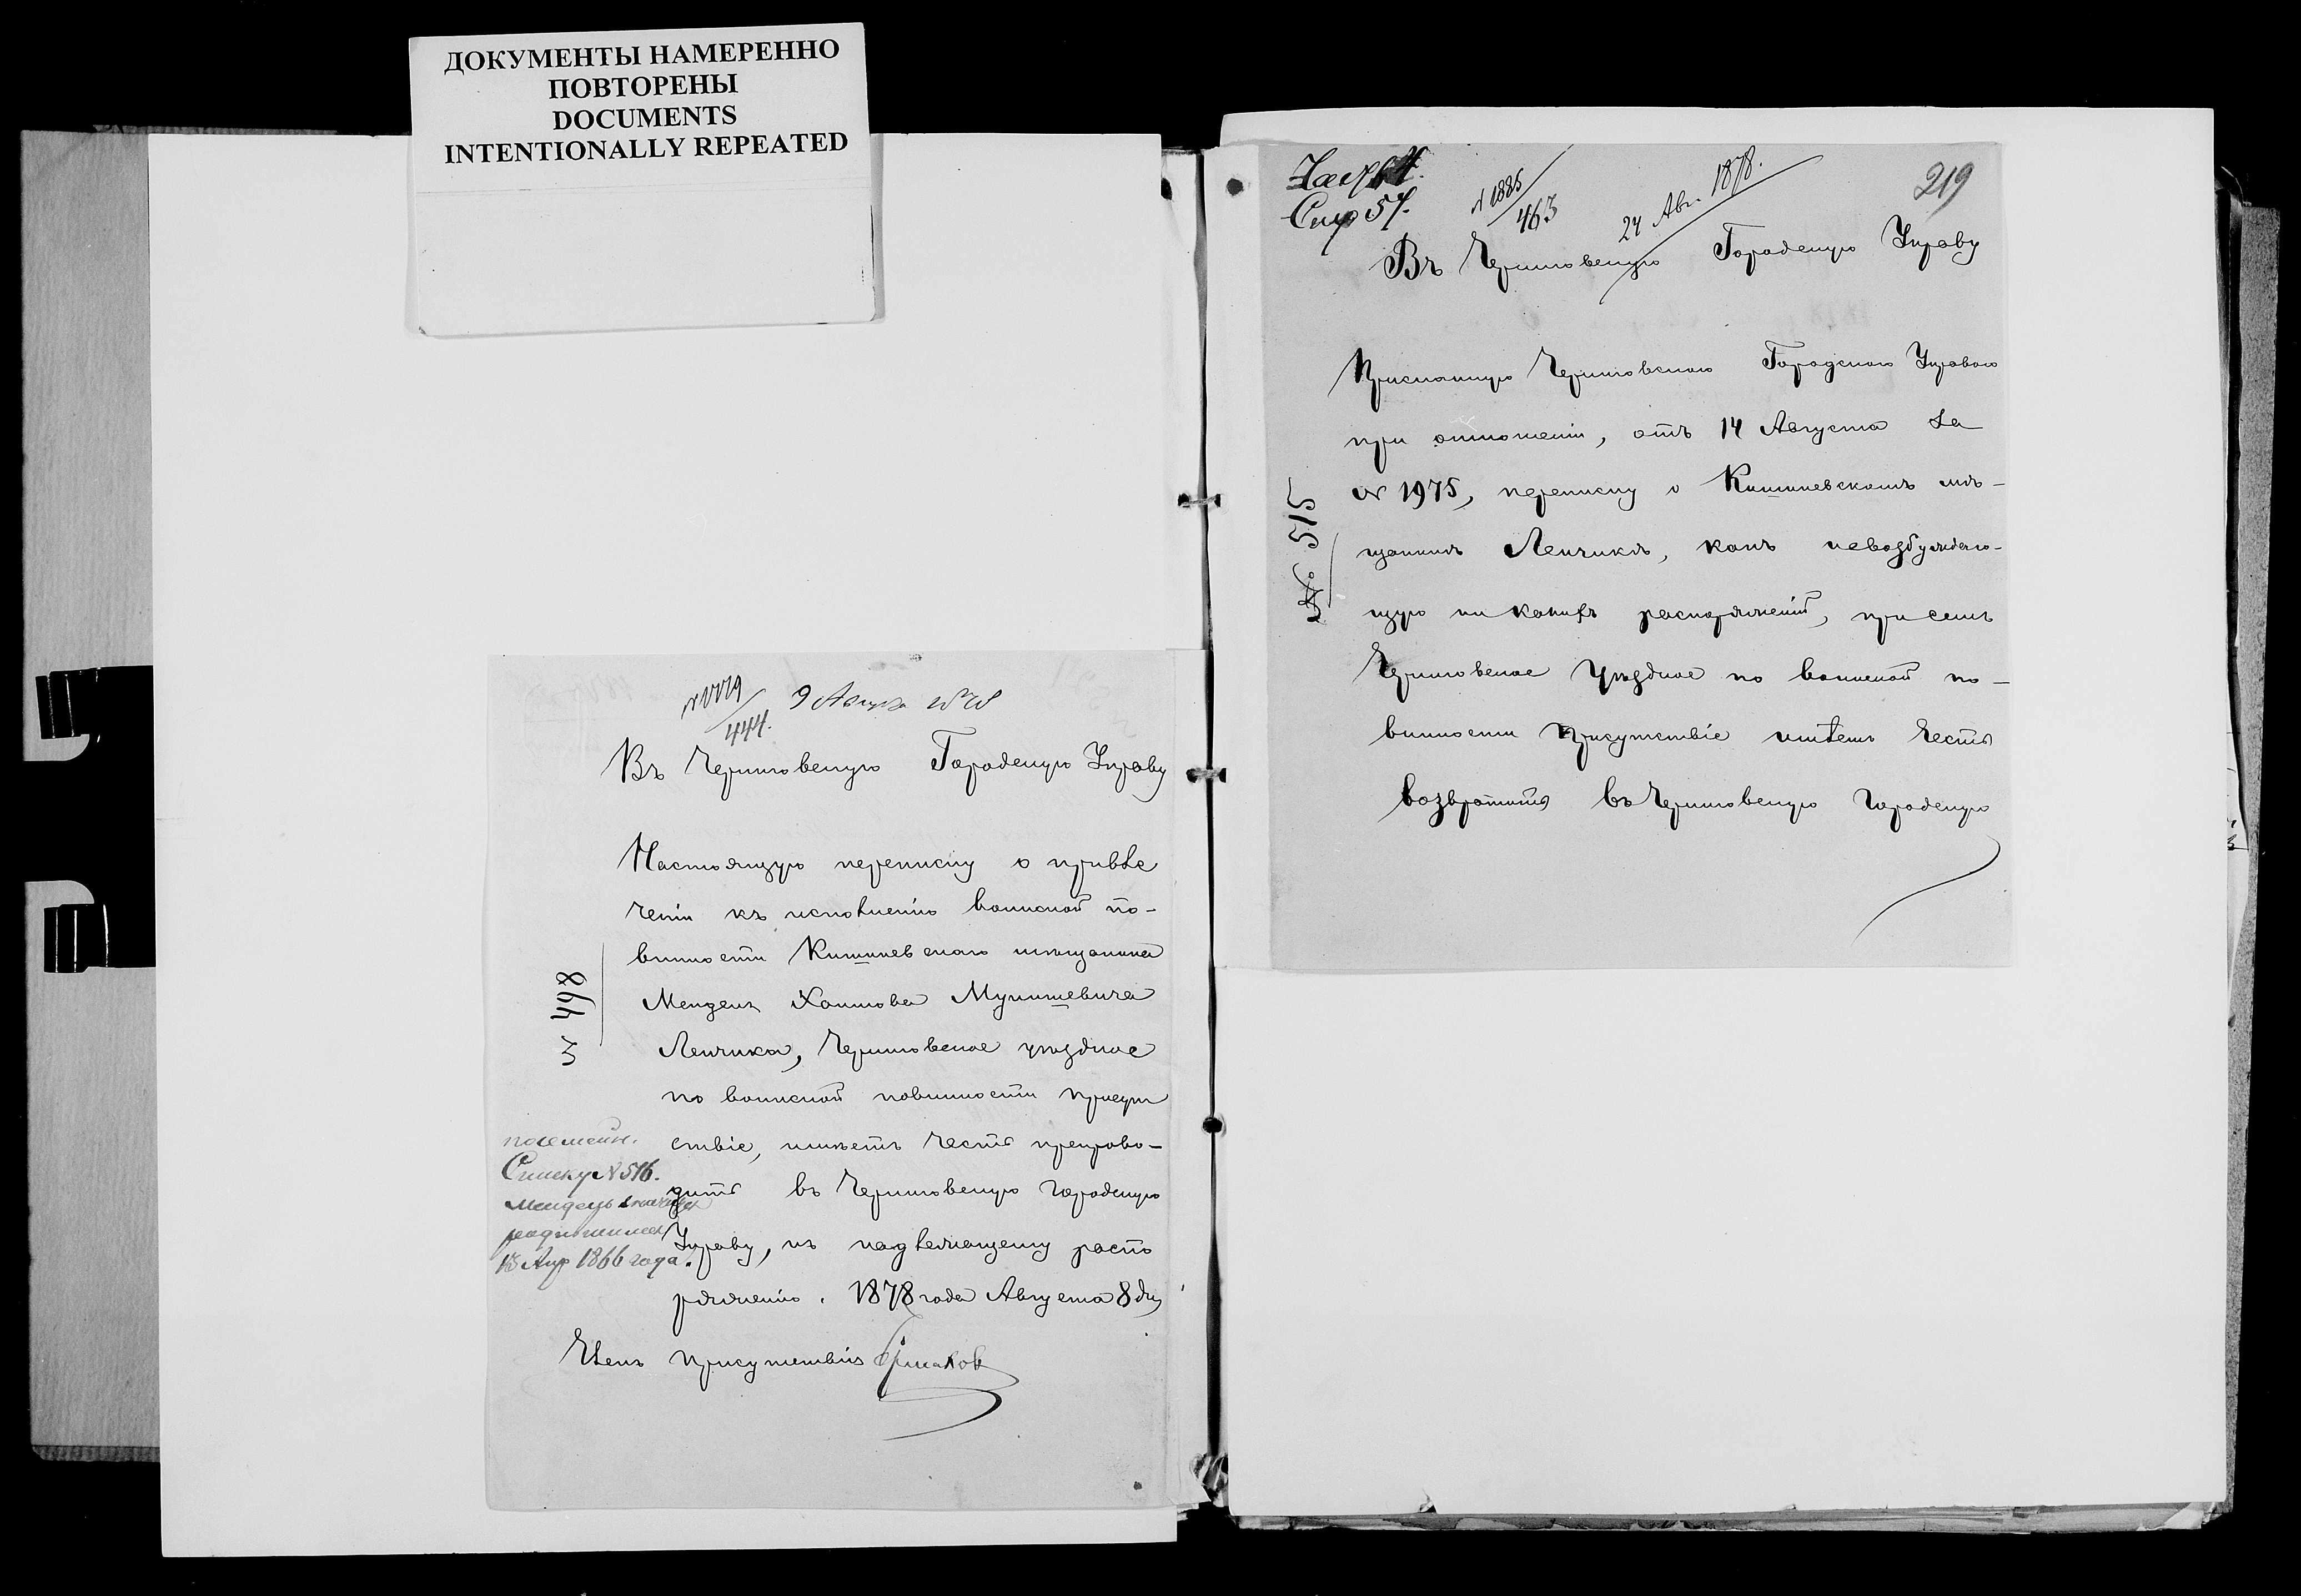 ДОКУМЕНТЫ НАМЕРЕННО
ПОВТОРЕНЫ
DOCUMENTS
INTENTIONALLY REPEATED
444.
9 Августа
Въ Черниговскую Городскую Управу
Настоящую переписку о привле
ченіи къ исполненію воинской по-
винности Кишиневскаго мѣщанина
Мендель Хаимова
Ленчика, Черниговское уѣздное
по воинской повинности присут
ствіе, имѣетъ честь препрово-
дить въ Черниговскую городскую
Управу, къ надлежащему распо
ряженію. 1878 года Августа 8 дня
Членъ присутствія Ермаков
№ 498
посемейн.
Списку № 516.
Мендель
родившимся
18 Апр 1866 года.
219
№ 1885
463
24 Авг. 1878.
Въ Черниговскую Городскую Управу
Присланную Черниговскою Городскою Управою
при отношеніи, отъ 14 Августа за
№ 1975, переписку о Кишиневскомъ мѣ-
щанинѣ Ленчикѣ, какъ невозбуждаю-
щую никакихъ распоряженій, при семъ
Черниговское Уѣздное по воинской по-
винности Присутствіе имѣетъ честь
возвратить въ Черниговскую городскую
№ 515